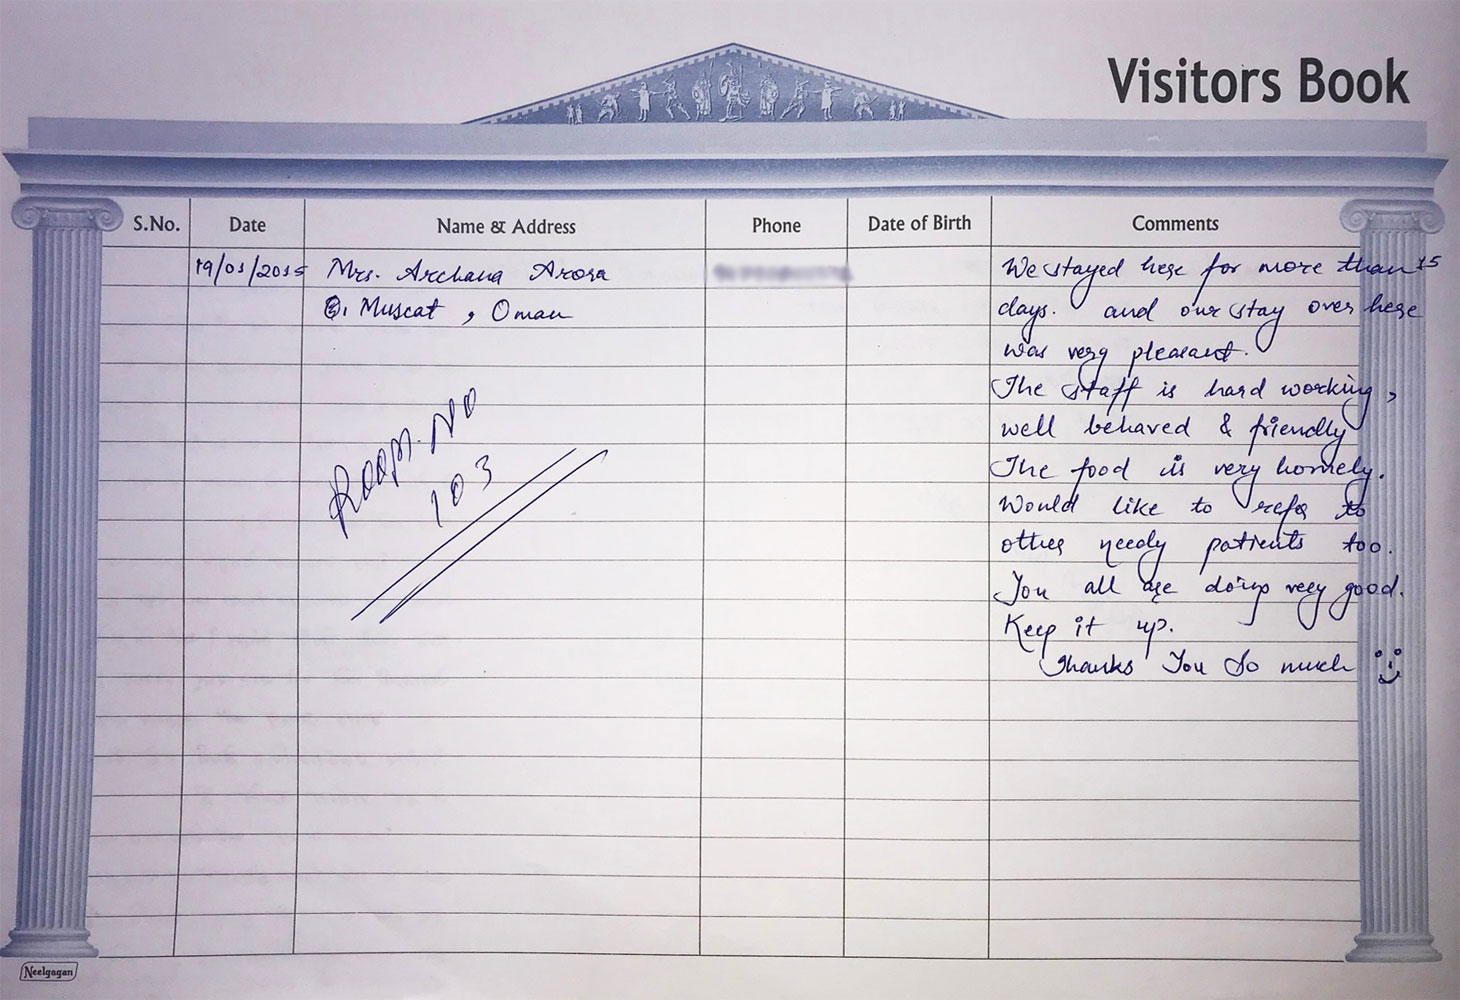 Visitors Book
S.No. Date Name & Address Phone Date of Birth Comments
19/01/2015 Mrs. Archana Arora We stayed here for more than 15
Muscat, Oman days. and our stay over here
was very pleasant.
The staff is hard working,
well behaved & friendly
The food is very homely.
Would like to refer to
other needy patients too.
You all are doing very good.
Keep it up.
Thanks You So much
Room. No
103
Neelgagan